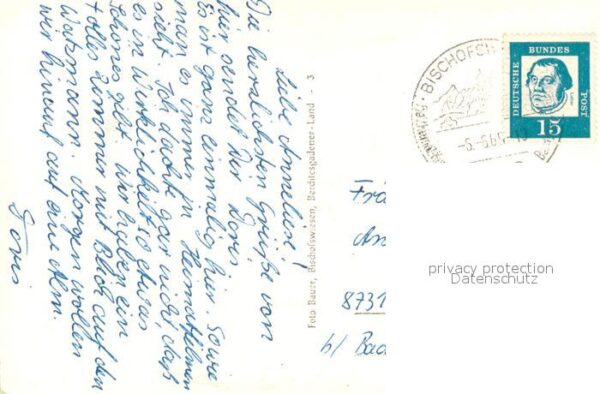 Liebe Anneliese!
Die herzlichsten Grüße von
hier sendet Dir Doris
Es ist ganz einmalig hier. So wie
man es immer in Heimatfilmen
sieht. Ich dachte gar nicht, daß
es in Wirklichkeit so etwas
schönes gibt. Wir haben ein
tolles Zimmer mit Blick auf den
Watzmann. Morgen wollen
wir hinauf auf eine Alm.
Doris
Foto Bauer, Bischofswiesen, Berchtesgadener-Land - 3
BISCHOFSW
DEUTSCHE BUNDES POST
15
Frä
An
8731
b/ Bad
privacy protection
Datenschutz